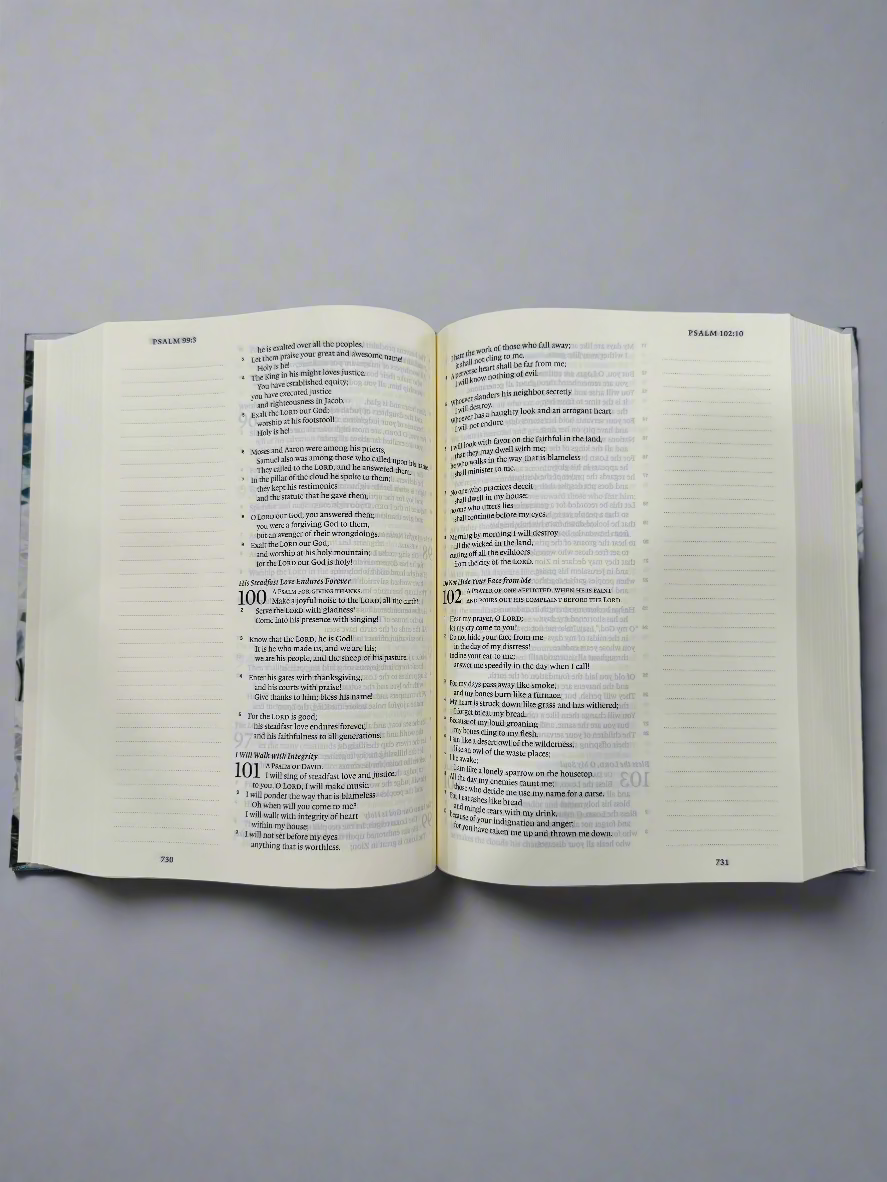 PSALM 99:3
he is exalted over all the peoples.
3 Let them praise your great and awesome name!
Holy is he!
4 The King in his might loves justice.
You have established equity;
you have executed justice
and righteousness in Jacob.
5 Exalt the LORD our God;
worship at his footstool!
Holy is he!
6 Moses and Aaron were among his priests,
Samuel also was among those who called upon his name.
They called to the LORD, and he answered them.
7 In the pillar of the cloud he spoke to them;
they kept his testimonies
and the statute that he gave them.
8 O LORD our God, you answered them;
you were a forgiving God to them,
but an avenger of their wrongdoings.
9 Exalt the LORD our God,
and worship at his holy mountain;
for the LORD our God is holy!
His Steadfast Love Endures Forever
100 A PSALM FOR GIVING THANKS.
Make a joyful noise to the LORD, all the earth!
2 Serve the LORD with gladness!
Come into his presence with singing!
3 Know that the LORD, he is God!
It is he who made us, and we are his;
we are his people, and the sheep of his pasture.
4 Enter his gates with thanksgiving,
and his courts with praise!
Give thanks to him; bless his name!
5 For the LORD is good;
his steadfast love endures forever,
and his faithfulness to all generations.
I Will Walk with Integrity
101 A PSALM OF DAVID.
I will sing of steadfast love and justice;
to you, O LORD, I will make music.
2 I will ponder the way that is blameless.
Oh when will you come to me?
I will walk with integrity of heart
within my house;
3 I will not set before my eyes
anything that is worthless.
730
PSALM 102:10
I hate the work of those who fall away;
it shall not cling to me.
4 A perverse heart shall be far from me;
I will know nothing of evil.
5 Whoever slanders his neighbor secretly
I will destroy.
Whoever has a haughty look and an arrogant heart
I will not endure.
6 I will look with favor on the faithful in the land,
that they may dwell with me;
he who walks in the way that is blameless
shall minister to me.
7 No one who practices deceit
shall dwell in my house;
no one who utters lies
shall continue before my eyes.
8 Morning by morning I will destroy
all the wicked in the land,
cutting off all the evildoers
from the city of the LORD.
Do Not Hide Your Face from Me
102 A PRAYER OF ONE AFFLICTED, WHEN HE IS FAINT
AND POURS OUT HIS COMPLAINT BEFORE THE LORD.
Hear my prayer, O LORD;
let my cry come to you!
2 Do not hide your face from me
in the day of my distress!
Incline your ear to me;
answer me speedily in the day when I call!
3 For my days pass away like smoke,
and my bones burn like a furnace.
4 My heart is struck down like grass and has withered;
I forget to eat my bread.
5 Because of my loud groaning
my bones cling to my flesh.
6 I am like a desert owl of the wilderness,
like an owl of the waste places;
7 I lie awake;
I am like a lonely sparrow on the housetop.
8 All the day my enemies taunt me;
those who deride me use my name for a curse.
9 For I eat ashes like bread
and mingle tears with my drink,
10 because of your indignation and anger;
for you have taken me up and thrown me down.
731